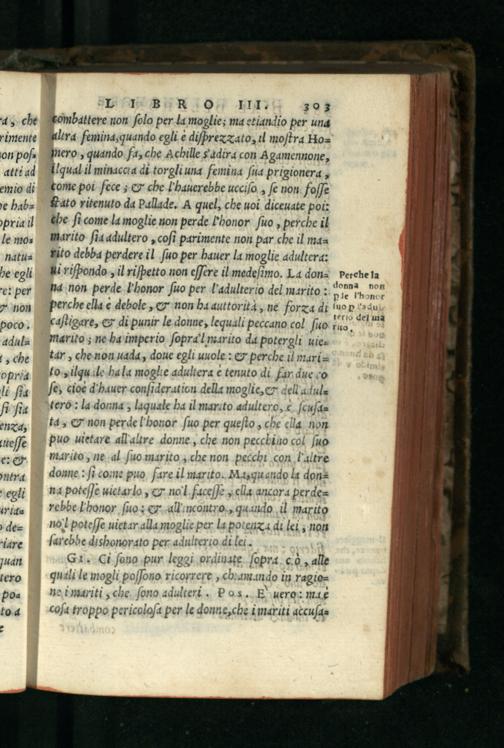 LIBRO III. 303
combattere non solo per la moglie; ma etiandio per una
altra femina, quando egli è disprezzato, il mostra Ho-
mero, quando fa, che Achille s'adira con Agamennone,
ilqual il minaccia di torgli una femina sua prigionera,
come poi fece; & che l'hauerebbe ucciso, se non fosse
stato ritenuto da Pallade. A quel, che uoi diceuate poi:
che si come la moglie non perde l'honor suo, perche il
marito sia adultero, così parimente non par che il ma-
rito debba perdere il suo per hauer la moglie adultera:
ui rispondo, il rispetto non essere il medesimo. La don-
na non perde l'honor suo per l'adulterio del marito:
perche ella è debole, & non ha auttorità, ne forza di
castigare, & di punir le donne, lequali peccano col suo
marito; ne ha imperio sopra'l marito da potergli uie-
tar, che non uada, doue egli uuole: & perche il mari-
to, ilquale ha la moglie adultera è tenuto di far due co
se, cioè d'hauer consideration della moglie, & dell'adul-
tero: la donna, laquale ha il marito adultero, è scusa-
ta, & non perde l'honor suo per questo, che ella non
puo uietare all'altre donne, che non pecchino col suo
marito, ne al suo marito, che non pecchi con l'altre
donne: si come puo fare il marito. Ma, quando la don-
na potesse uietarlo, & no'l facesse, ella ancora perde-
rebbe l'honor suo: & all'incontro, quando il marito
no'l potesse uietar alla moglie per la potenza di lei, non
sarebbe dishonorato per adulterio di lei.
GI. Ci sono pur leggi ordinate sopra ciò, alle
quali le mogli possono ricorrere, chiamando in ragio-
ne i mariti, che sono adulteri. POS. E' uero: ma è
cosa troppo pericolosa per le donne, che i mariti accusa-
Perche la
donna non
pde l'honor
suo p l'adul
terio del ma
rito.
ra, che
rimente
non pos-
atti ad
emio di
he hab-
opria il
le mo-
natu-
he egli
re: per
& non
poco.
adul-
, che
opria
gli sia
si sia
enza,
uesse
e: &
ontra
egli
uria-
o de-
riare
quan
tero
poa
to a